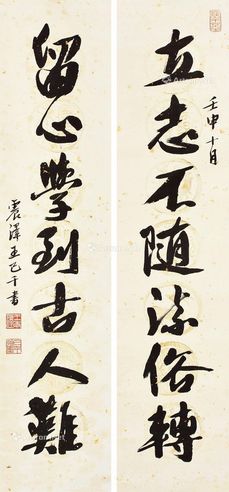 立志不随流俗轉
壬申十月
留心學到古人難
震澤王己千書